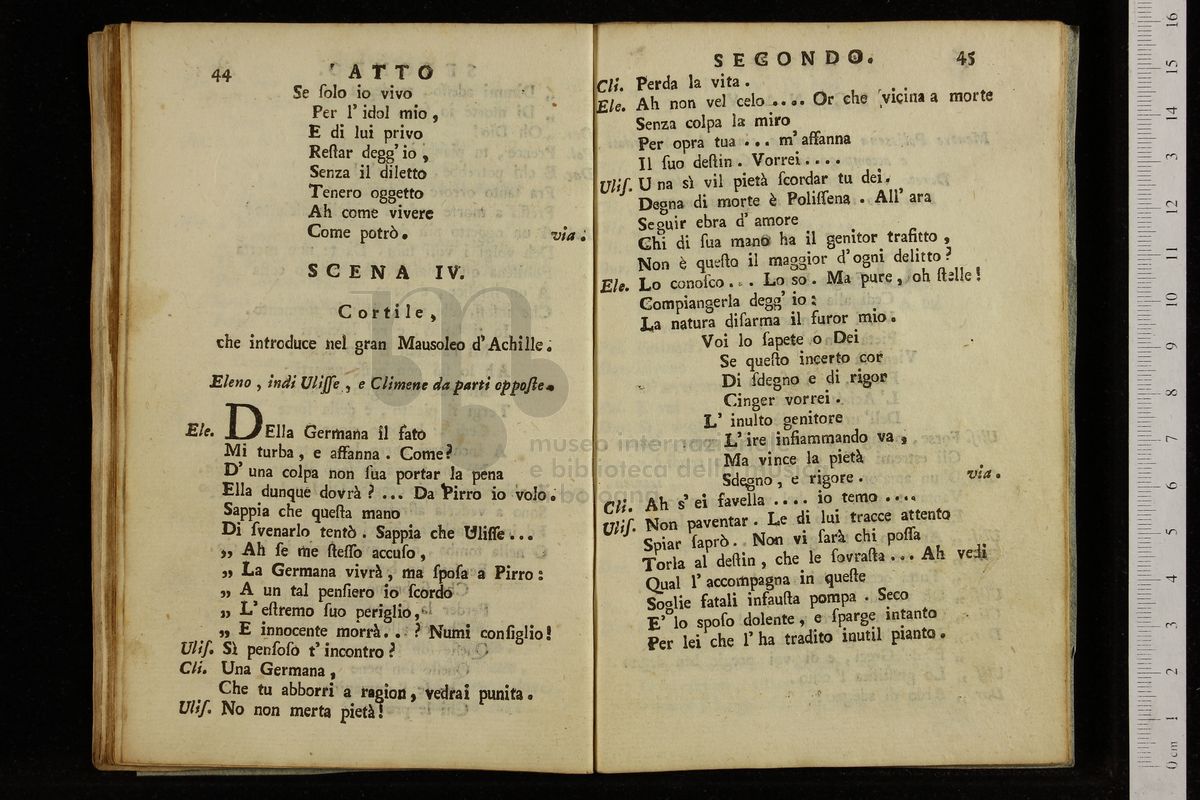 44
ATTO
Se ſolo io vivo
Per l' idol mio,
E di lui privo
Reſtar degg' io,
Senza il diletto
Tenero oggetto
Ah come vivere
Come potrò. via.
SCENA IV.
Cortile,
che introduce nel gran Mausoleo d'Achille.
Eleno, indi Uliſſe, e Climene da parti oppoſte.
Ele. DElla Germana il fato
Mi turba, e affanna. Come?
D' una colpa non ſua portar la pena
Ella dunque dovrà? ... Da Pirro io volo.
Sappia che queſta mano
Di ſvenarlo tentò. Sappia che Uliſſe...
„ Ah ſe me ſteſſo accuſo,
„ La Germana vivrà, ma ſpoſa a Pirro:
„ A un tal penſiero io ſcordo
„ L' eſtremo ſuo periglio,
„ E innocente morrà.. ? Numi conſiglio!
Uliſ. Sì penſoſo t' incontro?
Cli. Una Germana,
Che tu abborri a ragion, vedrai punita.
Uliſ. No non merta pietà!
SECONDO.
45
Cli. Perda la vita.
Ele. Ah non vel celo .... Or che vicina a morte
Senza colpa la miro
Per opra tua ... m' affanna
Il ſuo deſtin. Vorrei....
Uliſ. Una sì vil pietà ſcordar tu dei.
Degna di morte è Poliſſena. All' ara
Seguir ebra d' amore
Chi di ſua mano ha il genitor trafitto,
Non è queſto il maggior d'ogni delitto?
Ele. Lo conoſco... Lo so. Ma pure, oh ſtelle!
Compiangerla degg' io:
La natura diſarma il furor mio.
Voi lo ſapete o Dei
Se queſto incerto cor
Di ſdegno e di rigor
Cinger vorrei.
L' inulto genitore
L' ire infiammando va,
Ma vince la pietà
Sdegno, e rigore. via.
Cli. Ah s' ei favella .... io temo ....
Uliſ. Non paventar. Le di lui tracce attento
Spiar ſaprò. Non vi ſarà chi poſſa
Torla al deſtin, che le ſovraſta... Ah vedi
Qual l' accompagna in queſte
Soglie fatali infauſta pompa. Seco
E' lo spoſo dolente, e ſparge intanto
Per lei che l' ha tradito inutil pianto.
museo internazionale
e biblioteca della musica
di bologna
0 cm 1 2 3 4 5 6 7 8 9 10 11 12 13 14 15 16